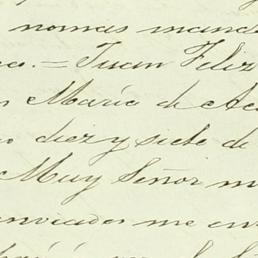 nomas mand
co. = Juan Feliz
Maria de Ac
diez y siete de
Muy Señor m
enviados me en